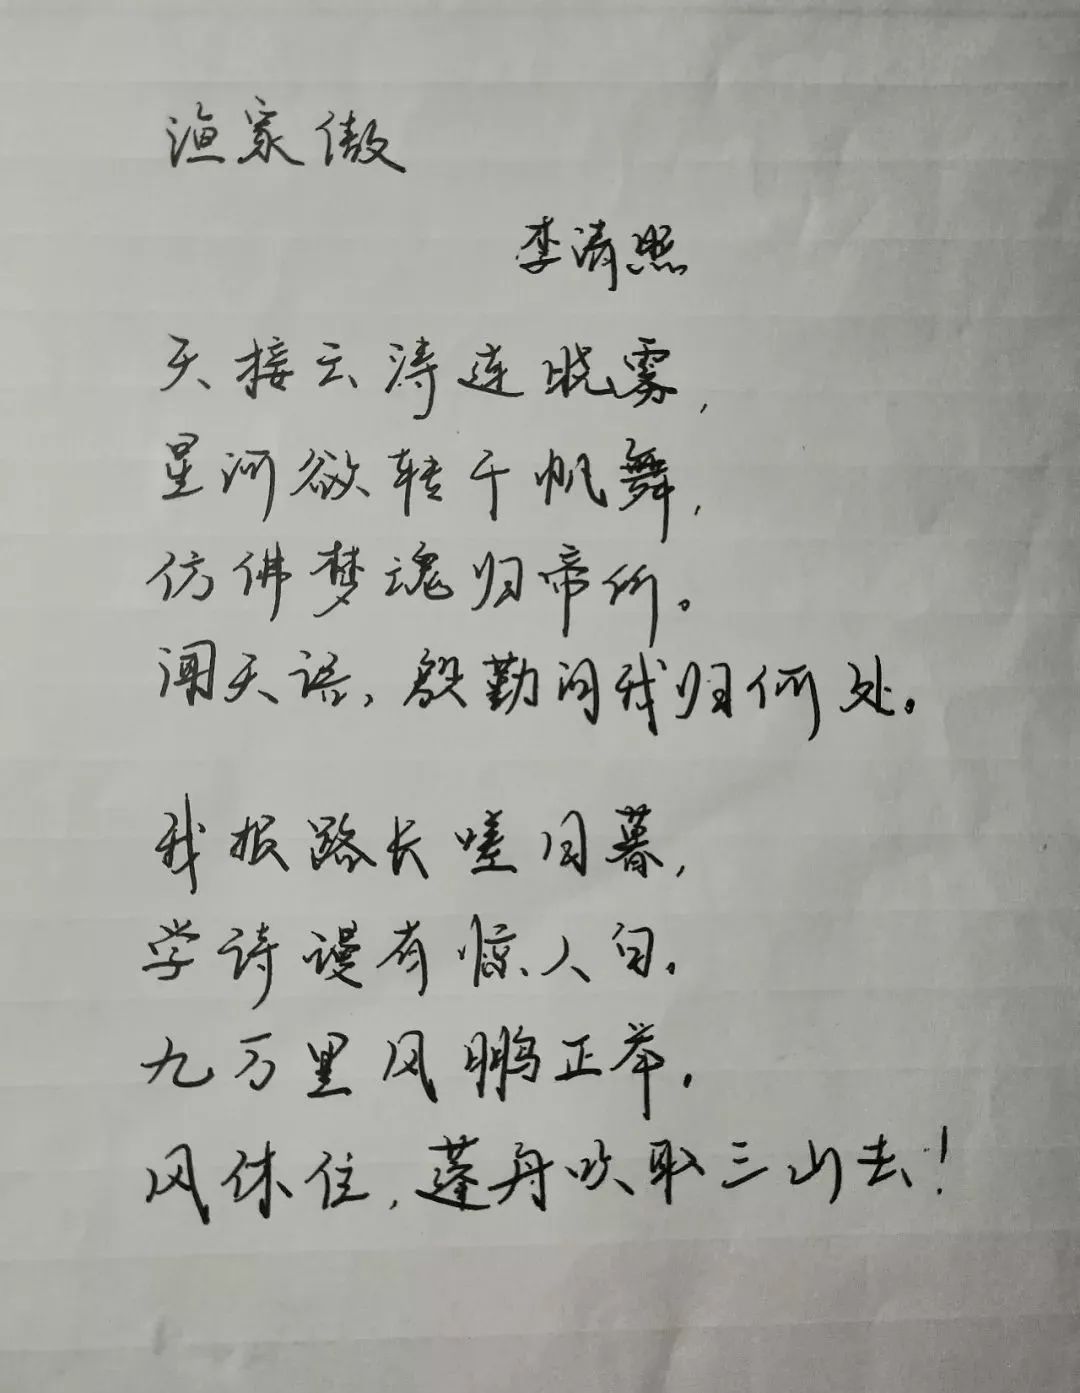 渔家傲
李清照
天接云涛连晓雾,
星河欲转千帆舞,
仿佛梦魂归帝所。
闻天语,殷勤问我归何处。
我报路长嗟日暮,
学诗谩有惊人句。
九万里风鹏正举.
风休住,蓬舟吹取三山去!